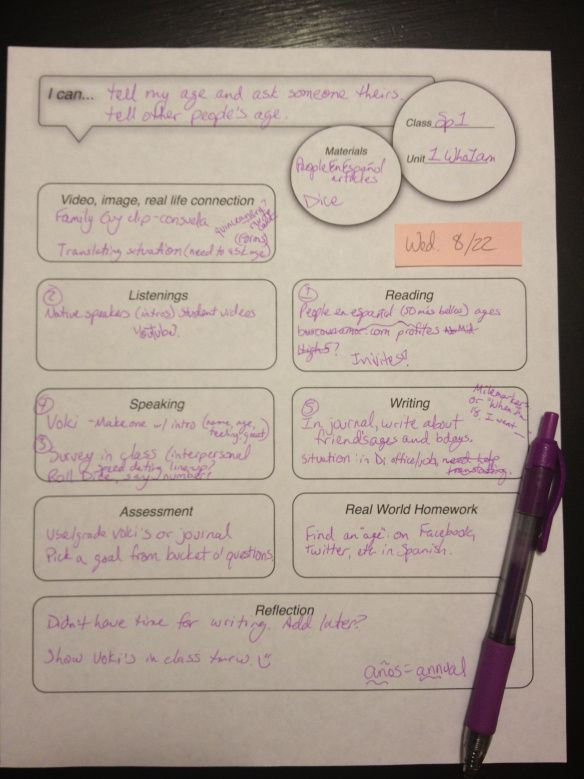 I can... tell my age and ask someone theirs.
tell other people's age.
Class Sp1
Unit 1 WhoIam
Materials
PeopleEnEspañol
articles
Dice
Video, image, real life connection
Family Guy clip-consuela
quinceañera?
(Forms)
Translating situation (need to ask age)
Wed. 8/22
Listenings
② Native speakers (intros) student videos
Youtube?
Reading
① People en español (50 más bellos) ages
buscouamor.com profiles
High 5?
Invites?
Speaking
④ Voki - Make one w/ intro (name, age,
feeling, greet)
③ Survey in class (interpersonal
speed dating line-up?
Roll Dice, say number?
Writing
Milemarkers
or "When I'm
⑤ In journal, write about
friends ages and bdays.
situation: in Dr office/job, need help
translating.
Assessment
Use/grade Voki's or journal
Pick a goal from bucket o' questions
Real World Homework
Find an "age": on Facebook,
Twitter, etc in Spanish.
Reflection
Didn't have time for writing. Add later?
Show Voki's in class tmrw.
años = annual